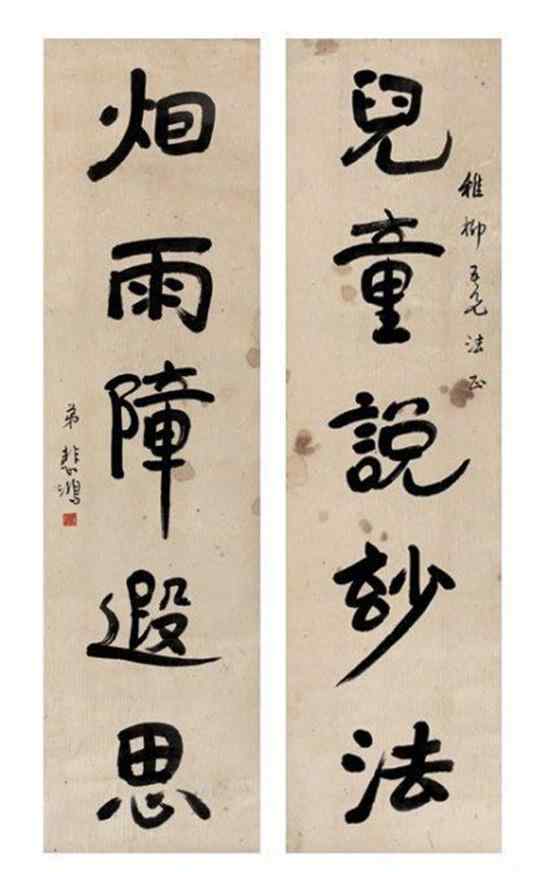 稚柳吾兄法正
兒童說玅法
烟雨障遐思
弟悲鴻